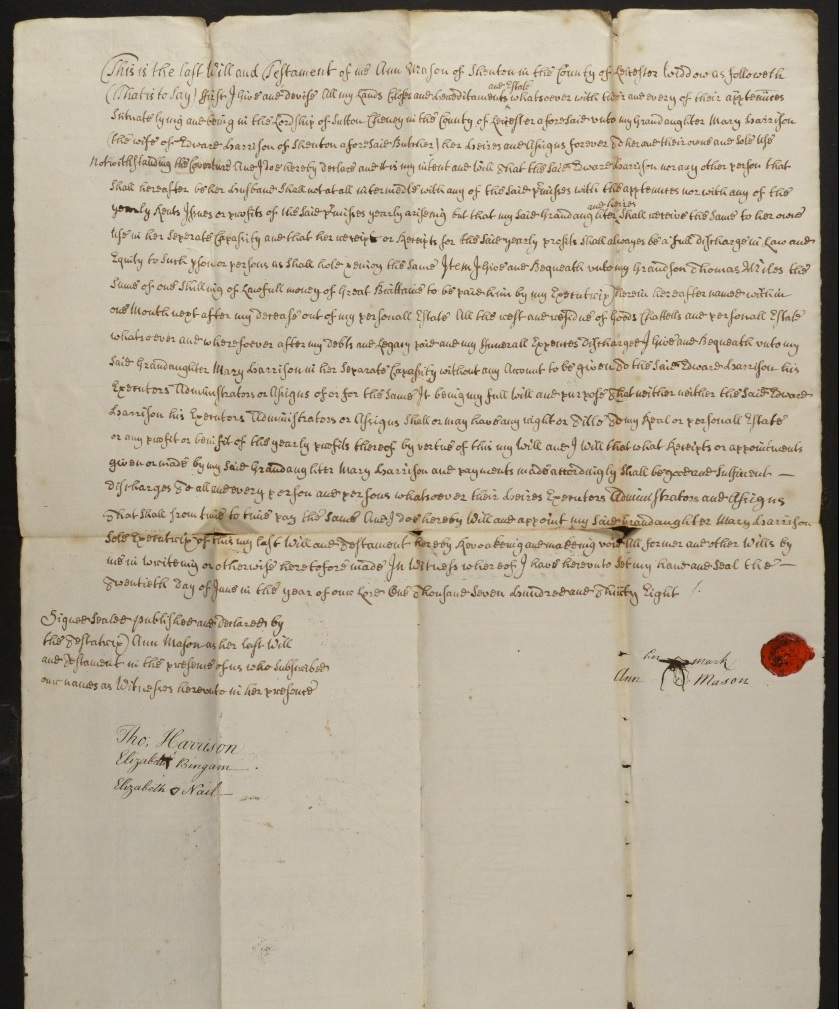 This is the last Will and Testament of me Ann Mason of Shenton in the County of Leicester Widdow as followeth
(That is to Say) first I Give and devise All my Lands Closes and hereditaments and Estate whatsoever with their and every of their apptenñces
Scituate lying and being in the Lordship of Sutton Cheney in the County of Leicester aforesaid unto my Grandaughter Mary Harrison
(the wife of Edward Harrison of Shenton aforesaid Butcher) her Heires and Assigns forever to her and their owne and Sole Use
Notwithstanding the Coverture And I doe hereby declare and it is my intent and Will that the said Edward Harrison nor any other person that
Shall hereafter be her Husband Shall not at all intermeddle with any of the Said p'mises with the apptenñces nor with any of the
yearly Rents Issues or profits of the Said p'mises yearly ariseing but that my Said Grandaughter and heires Shall receive the Same to her owne
Use in her Seperate Capasity and that her receipt or Receipts for the Said yearly profits Shall always be a full discharge in Law and
Equity to Such pson or persons as Shall hold or enjoy the Same Item I Give and Bequeath unto my Grandson Thomas the
Sume of one Shilling of Lawfull money of Great Brittaine to be paid him by my Executrix herein hereafter named within
one Month next after my decease out of my personall Estate All the rest and residue of Goods Chattells and personall Estate
whatsoever and wheresoever after my Debts and Legacy paid and my funerall Expences Discharged I Give and Bequeath unto my
Said Grandaughter Mary Harrison in her Separate Capasity without any Account to be given to the Said Edward Harrison his
Executors Administrators or Assigns of or for the Same It being my full Will and purpose that neither neither the Said Edward
Harrison his Executors Administrators or Assigns Shall or may have any right or Title to my Real or personall Estate
or any profit or benifit of the yearly profits thereof by vertue of this my Will and I Will that what Receipts or appointments
given or made by my Said Grandaughter Mary Harrison and payments made accordingly Shall be good and Sufficient —
discharges to all and every person and persons whatsoever their Heires Executors Administrators and Assigns
that Shall from time to time pay the Same And I doe hereby Will and appoint my Said Grandaughter Mary Harrison
Sole Executrix of this my last Will and Testament hereby Revoakeing and makeing void All former and other Wills by
me in writeing or otherwise heretofore made In Witness whereof I have hereunto Set my hand and Seal the —
Twentieth Day of June in the year of our Lord One Thousand Seven Hundred and Thirty Eight
Signed Sealed published and Declared by
the Testatrix Ann Mason as her last Will
and Testament in the presence of us who Subscribed
our names as Witnesses hereunto in her presence
her mark
Ann Mason
Tho: Harrison
Elizabeth Bingam
Elizabeth Nail